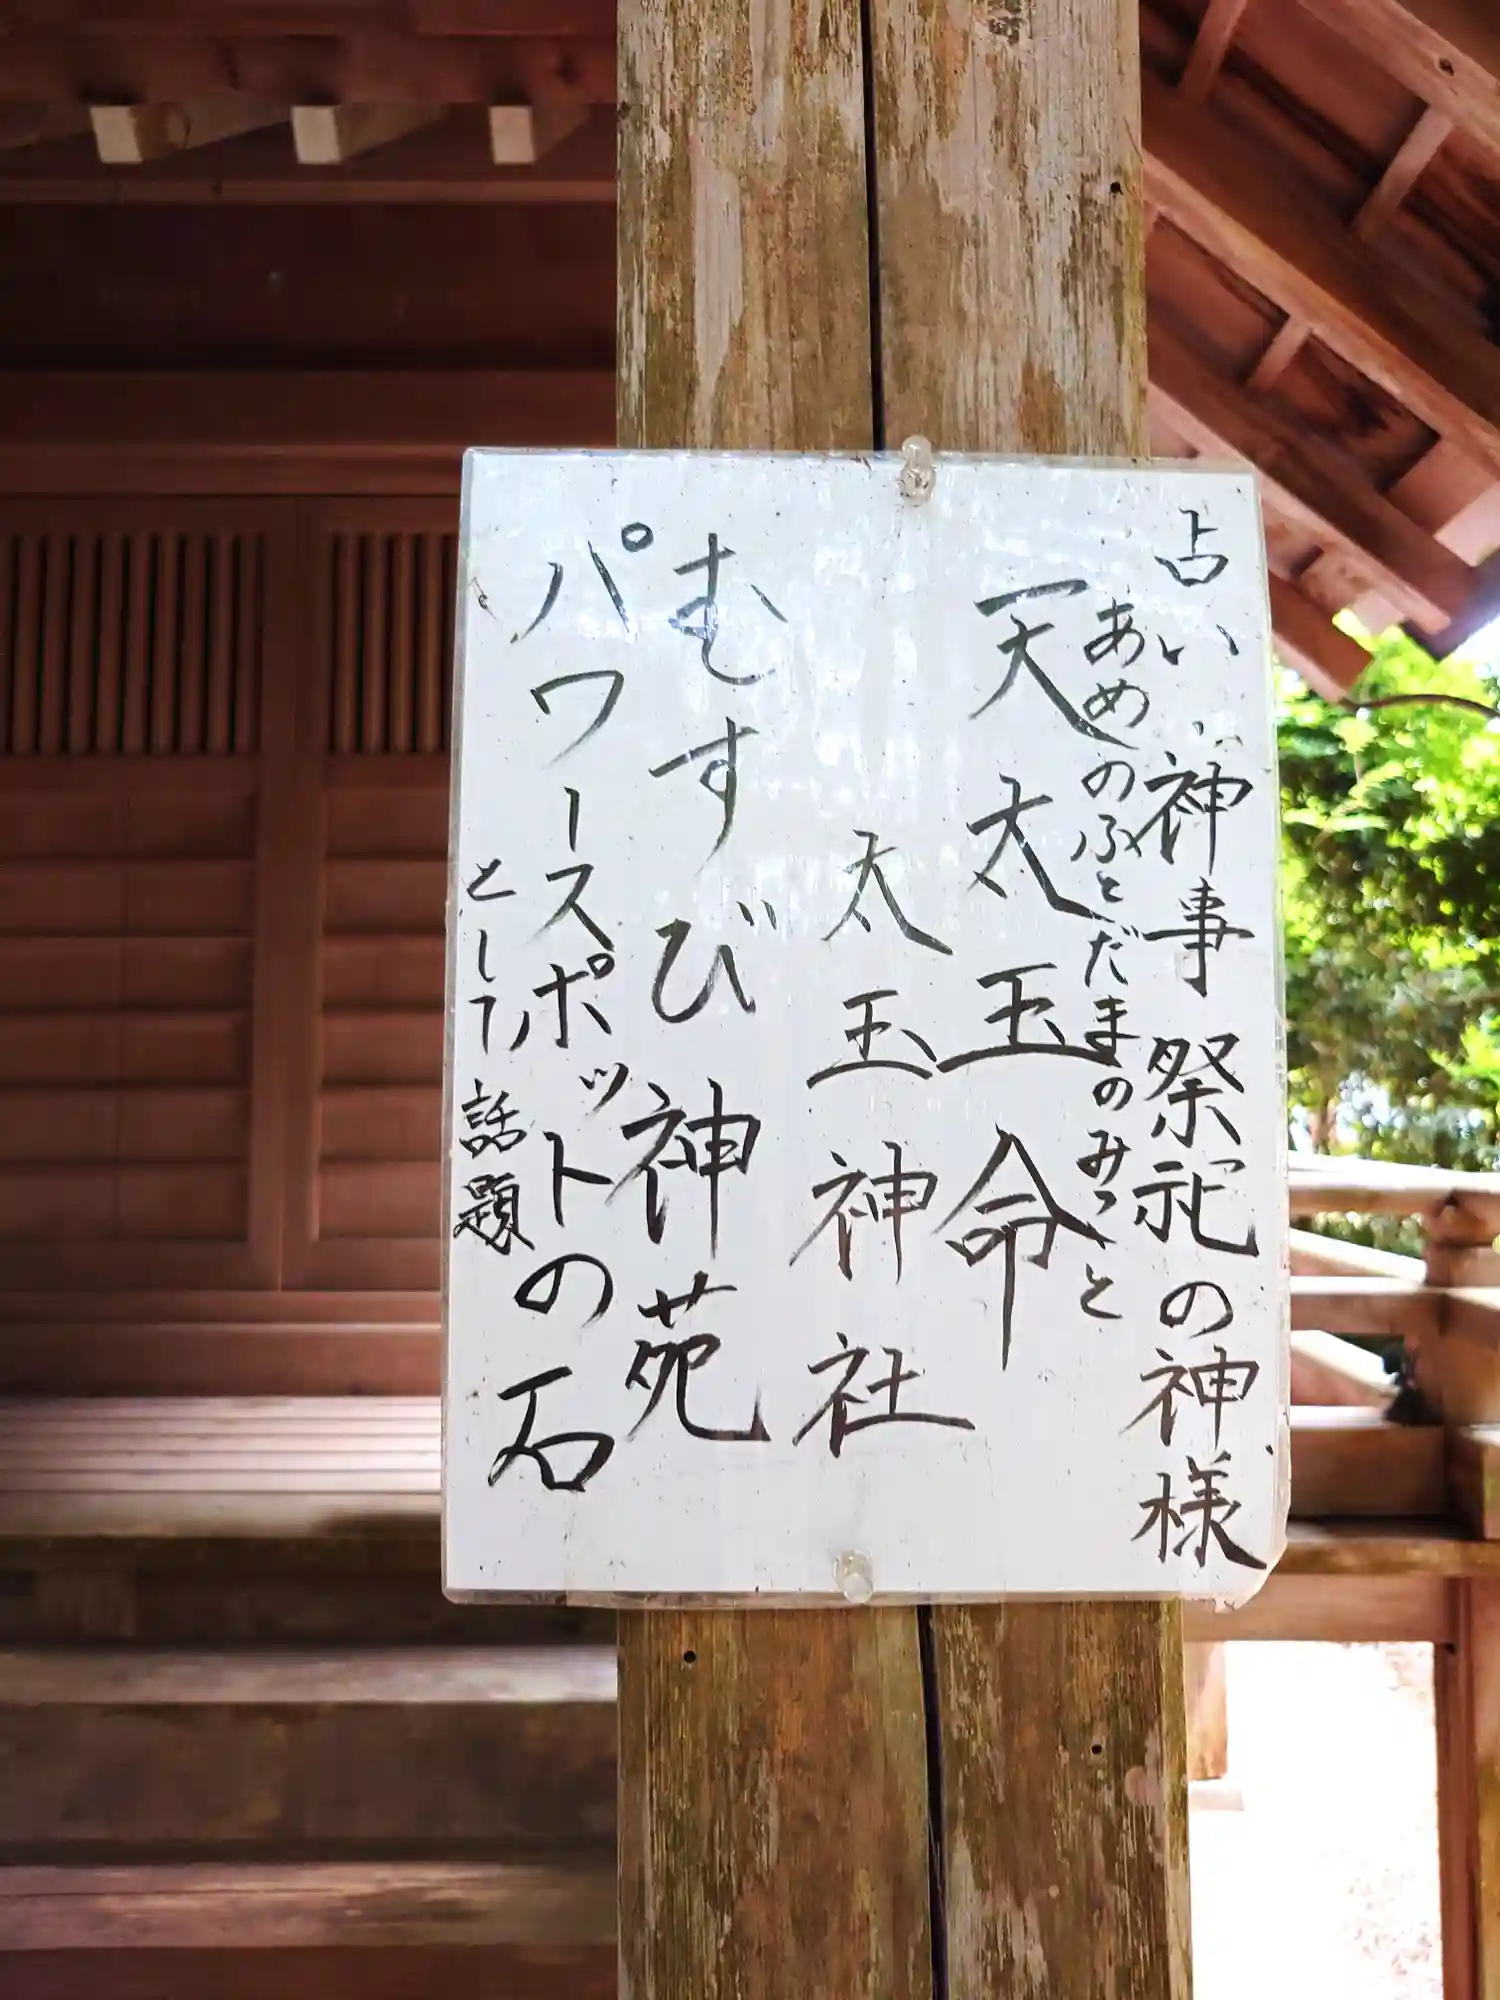 占い、神事 祭祀の神様
あめのふとだまのみこと
天太玉命
太玉神社
むすび神苑
パワースポットの石
として話題